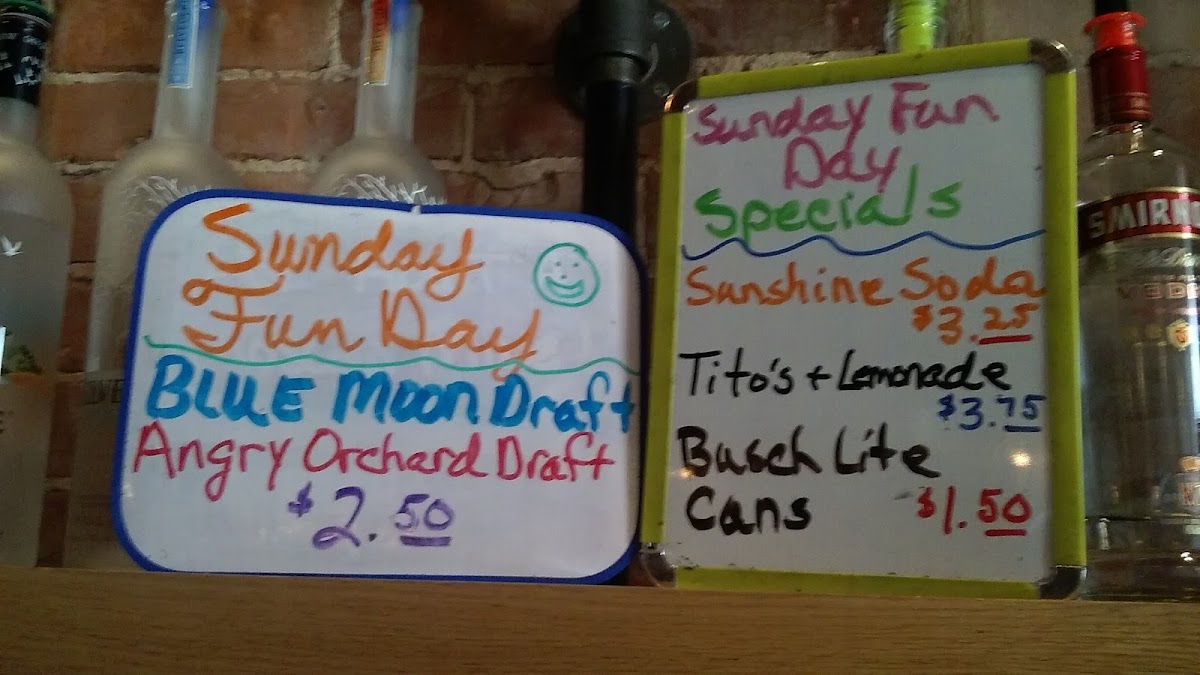 Sunday
Fun Day
BLUE Moon Draft
Angry Orchard Draft
$2.50
Sunday Fun
Day
Specials
Sunshine Soda
$3.25
Tito's + Lemonade
$3.75
Busch Lite
Cans $1.50
SMIRN